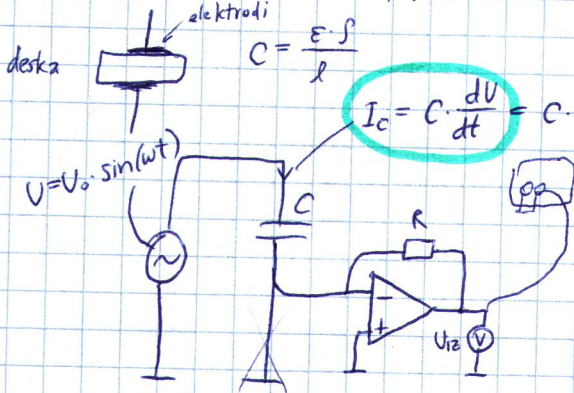 elektrodi
deska
C = ε·S / l
I_c = C · dU/dt = C ·
U=U₀·sin(ωt)
C
~
R
−
+
U_iz
V